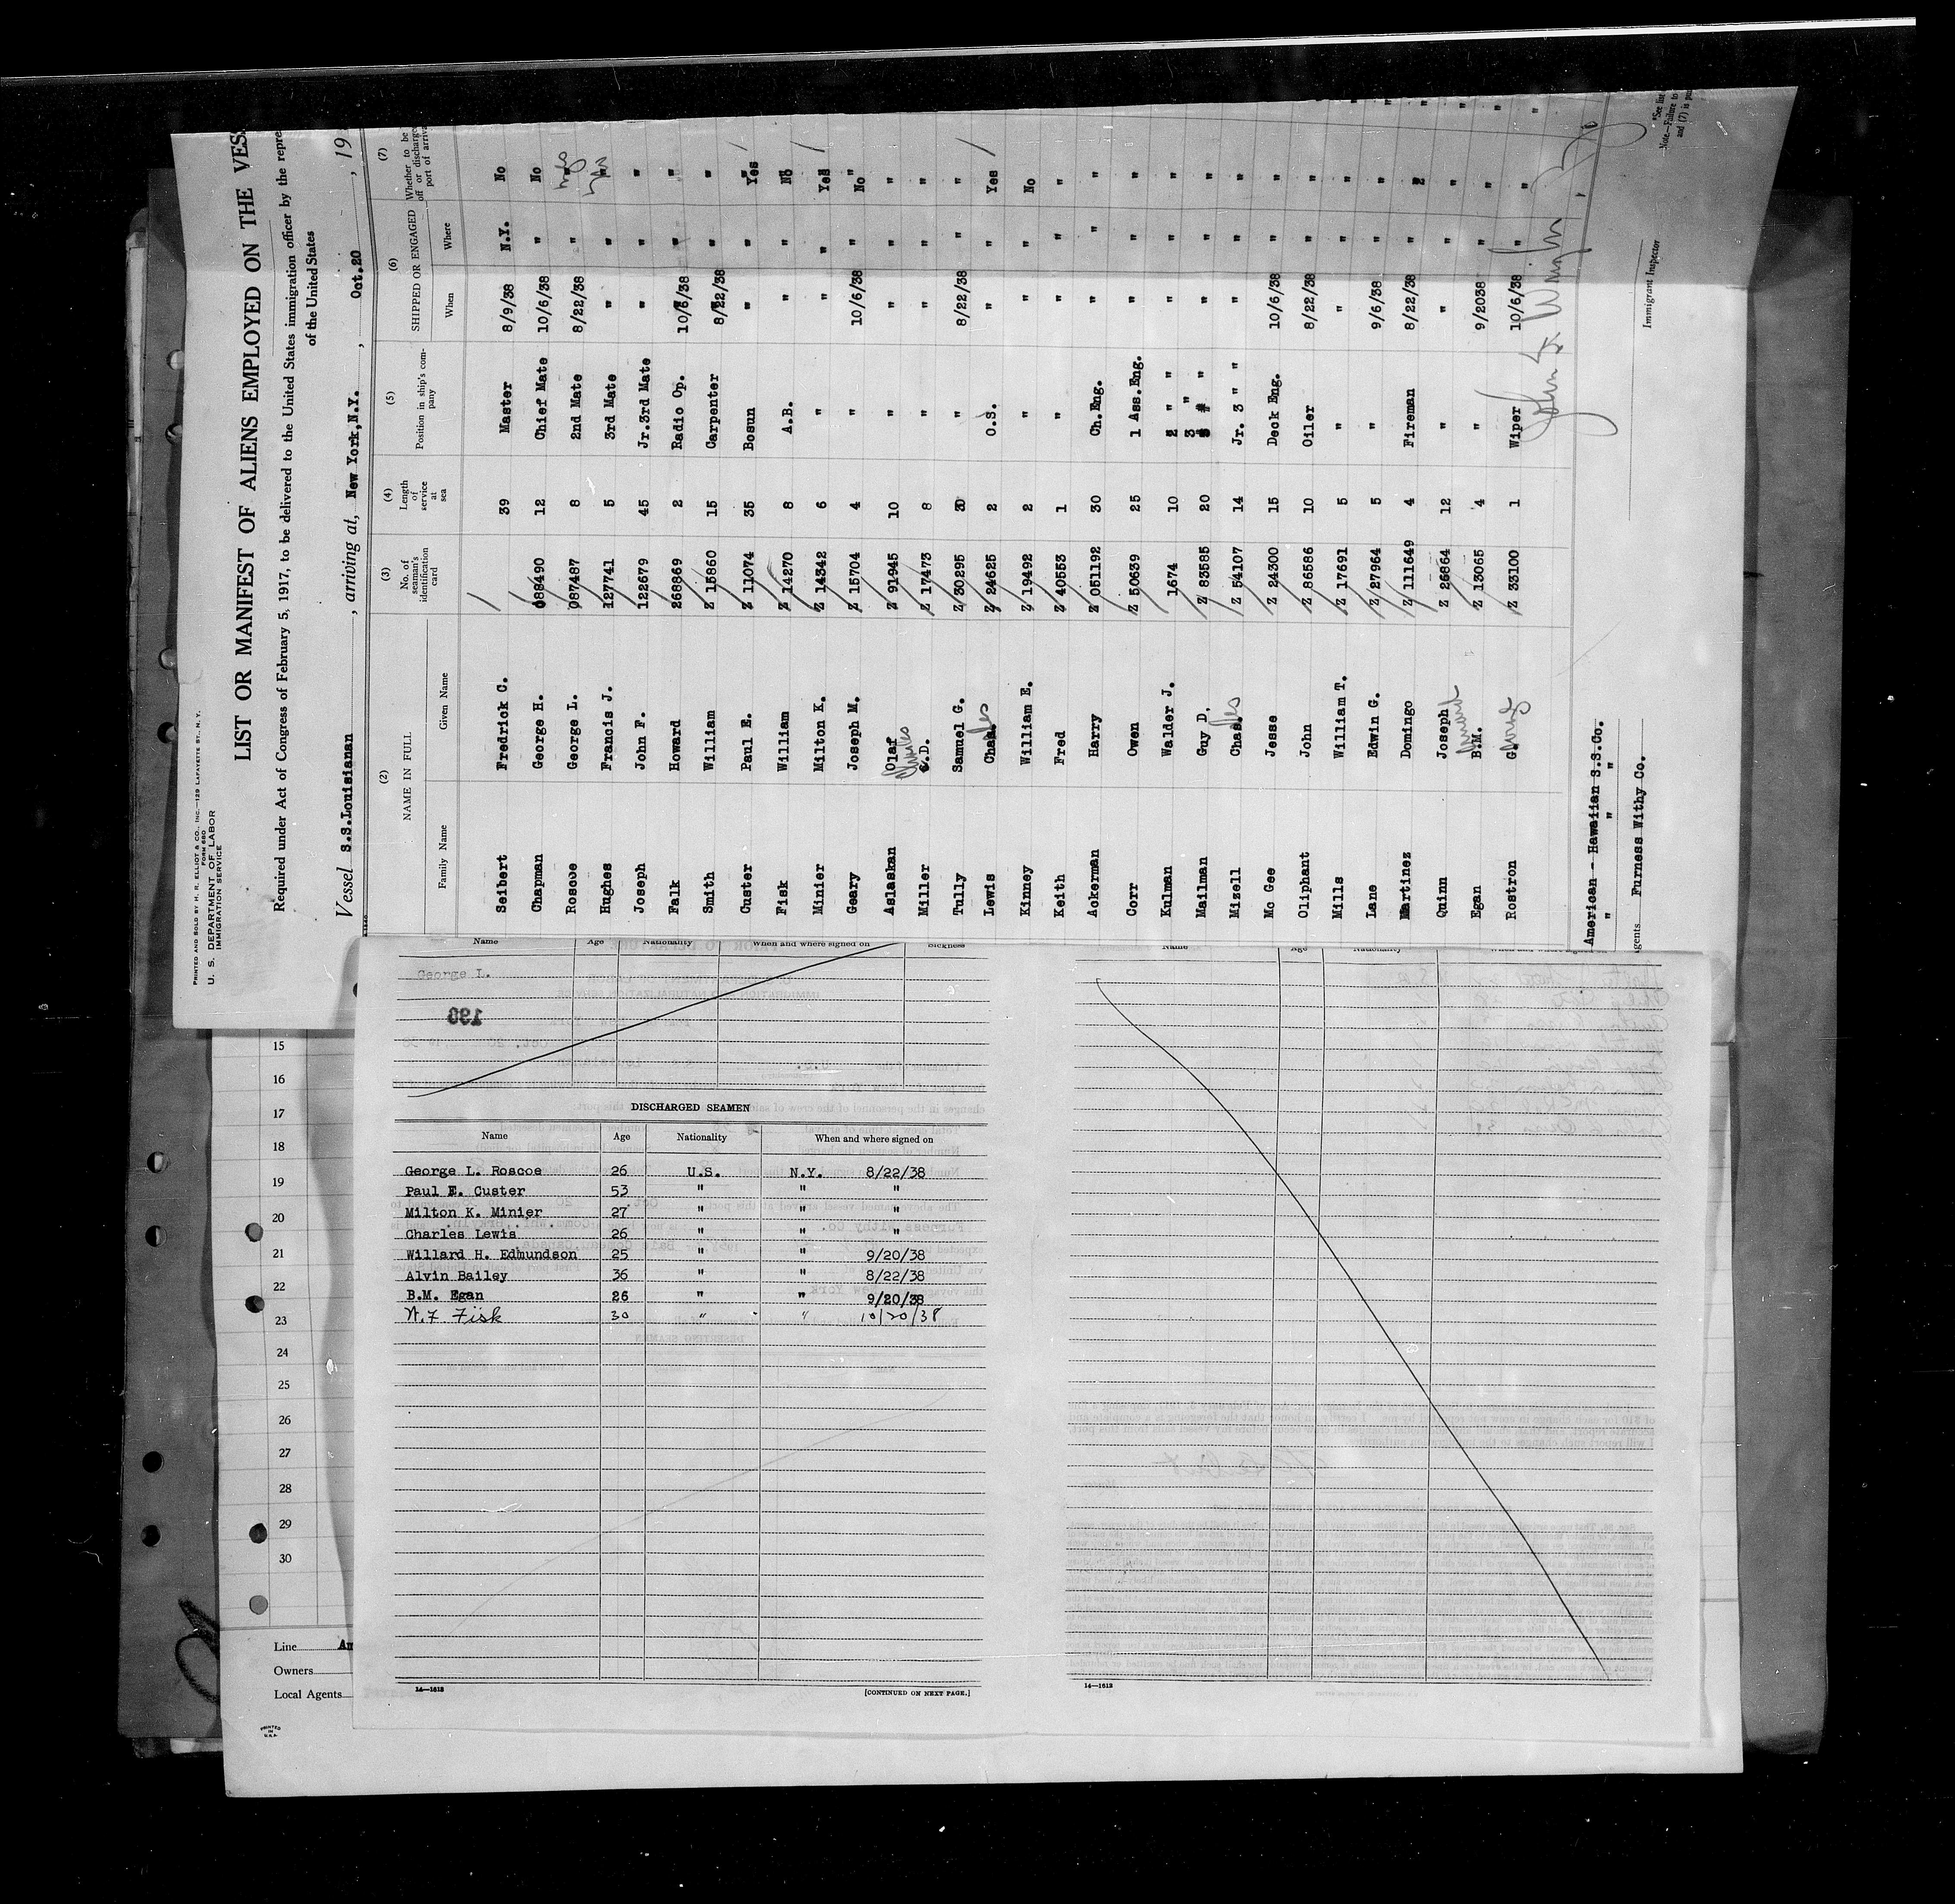 PRINTED AND SOLD BY H. R. ELLIOT & CO., INC.—129 LAFAYETTE ST., N. Y.
FORM 680
U. S. DEPARTMENT OF LABOR
IMMIGRATION SERVICE
LIST OR MANIFEST OF ALIENS EMPLOYED ON THE VES
Required under Act of Congress of February 5, 1917, to be delivered to the United States immigration officer by the repre
of the United States
Vessel S.S.Louisianan , arriving at, New York,N.Y. , Oct.20 , 19
(2) (3) (4) (5) (6) (7)
NAME IN FULL No. of seaman's identification card Length of service at sea Position in ship's company SHIPPED OR ENGAGED Whether to be off or discharged port of arriva
Family Name Given Name When Where
Seibert Fredrick C. 39 Master 8/9/38 N.Y. No
Chapman George H. 088490 12 Chief Mate 10/6/38 " No
Roscoe George L. 087487 8 2nd Mate 8/22/38 "
Hughes Francis J. 127741 5 3rd Mate " "
Joseph John F. 122679 45 Jr.3rd Mate " " "
Falk Howard 268869 2 Radio Op. 10/6/38 " "
Smith William Z 15860 15 Carpenter 8/22/38 " "
Custer Paul E. Z 11074 35 Bosun " " Yes
Fisk William Z 14270 8 A.B. " " No
Minier Milton K. Z 14342 6 " " " Yes
Geary Joseph M. Z 15704 4 " 10/6/38 " No
Aslaskan Olaf Z 91945 10 " " " "
Miller C.D. Charles Z 17473 8 " " " "
Tully Samuel G. Z 30295 30 " 8/22/38 " "
Lewis Charles Z 24625 2 O.S. " " Yes
Kinney William E. Z 19492 2 " " " No
Keith Fred Z 40553 1 " " " "
Ackerman Harry Z 051192 30 Ch.Eng. " " "
Corr Owen Z 50639 25 1 Ass.Eng. " " "
Kulman Walder J. 1674 10 2 " " " " "
Mailman Guy D. Z 83585 20 3 " " " " "
Mizell Chas. Z 54107 14 Jr. 3 " " " " "
Mc Gee Jesse Z 24300 15 Deck Eng. 10/6/38 " "
Oliphant John Z 86586 10 Oiler 8/22/38 " "
Mills William T. Z 17691 5 " " " "
Lane Edwin G. Z 27964 5 " 9/6/38 " "
Martinez Domingo Z 111649 4 Fireman 8/22/38 " "
Quinn Joseph Z 26864 12 " " " "
Egan B.M. Z 13065 4 " 9/2038 " "
Rostron G. George Z 33100 1 Wiper 10/6/38 " "
American - Hawaiian S.S.Co.
" " "
gents Furness Withy Co.
Immigrant Inspector
*See list
Note.—Failure to
and (7) is pu
Name Age Nationality When and where signed on Sickness
George L.
DISCHARGED SEAMEN
Name Age Nationality When and where signed on
George L. Roscoe 26 U.S. N.Y. 8/22/38
Paul E. Custer 53 " " "
Milton K. Minier 27 " " "
Charles Lewis 26 " " "
Willard H. Edmundson 25 " " 9/20/38
Alvin Bailey 36 " " 8/22/38
B.M. Egan 26 " " 9/20/38
W.F. Fisk 30 " " 10/20/38
14—1613
[CONTINUED ON NEXT PAGE.]
Name Age Nationality When and where signed on
14—1613
15
16
17
18
19
20
21
22
23
24
25
26
27
28
29
30
Line Am
Owners
Local Agents
PRINTED
IN
U.S.A.